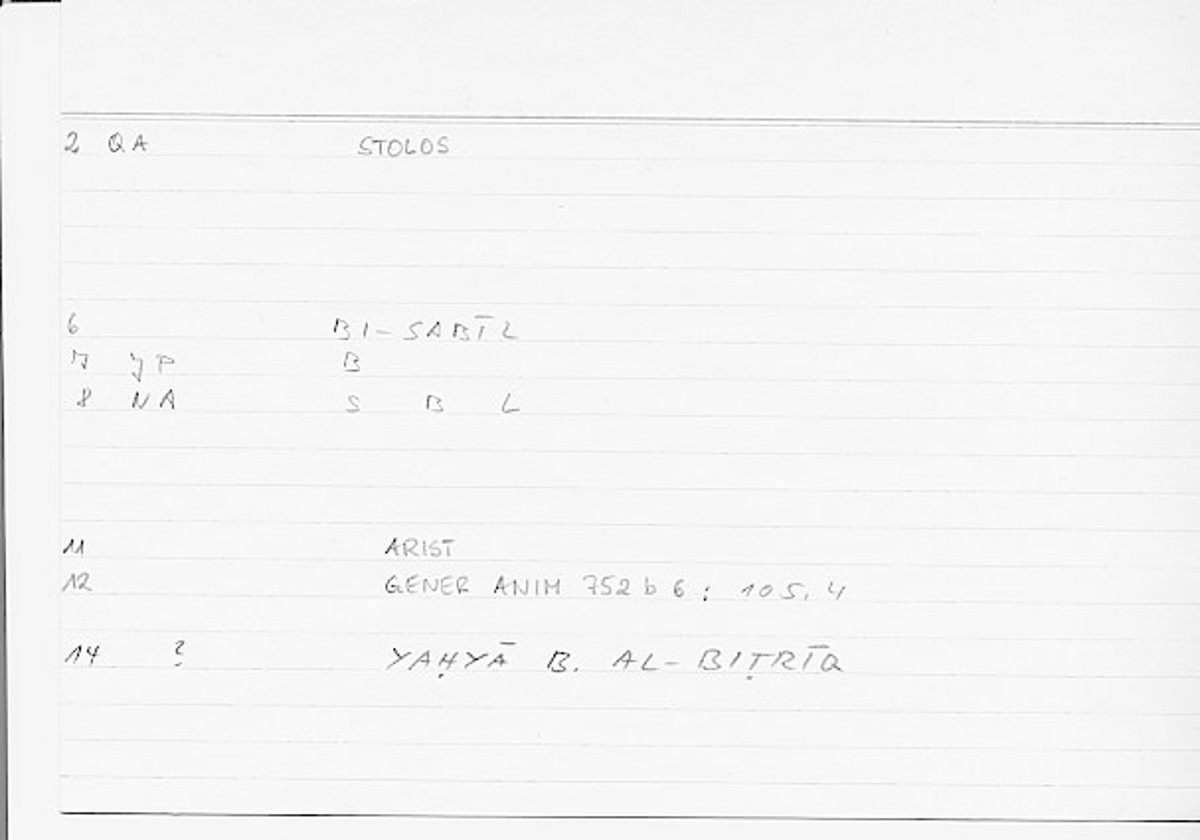 2 QA STOLOS
6 BI-SABĪL
7 JP B
8 NA S B L
11 ARIST
12 GENER ANIM 752 b 6 : 105,4
14 ? YAḤYĀ B. AL-BIṬRĪQ